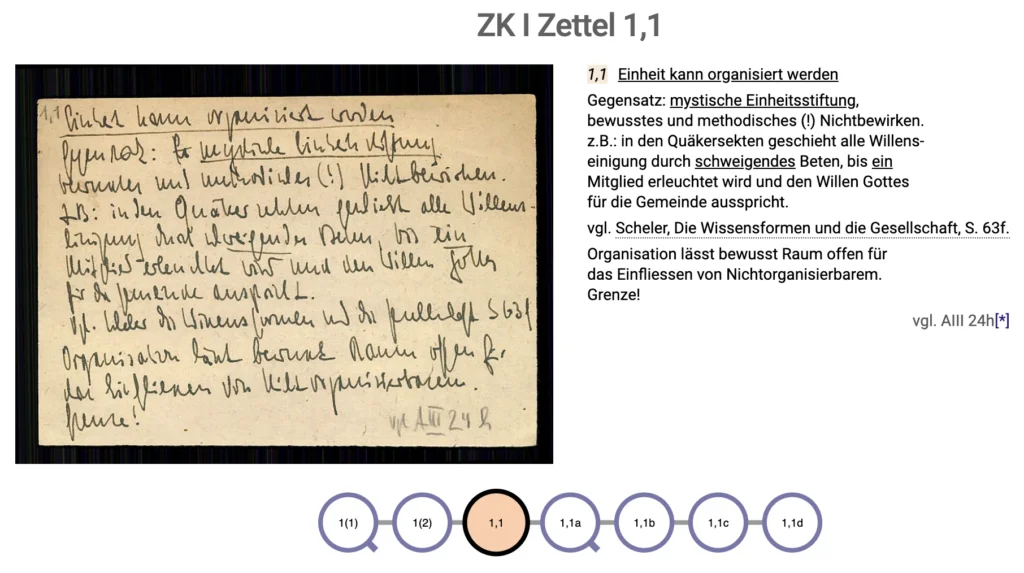 ZK I Zettel 1,1
1,1 Einheit kann organisiert werden
Gegensatz: Die mystische Einheitsstiftung,
bewusstes und methodisches (!) Nichtbewirken.
z.B.: in den Quäkersekten geschieht alle Willens-
einigung durch schweigendes Beten, bis ein
Mitglied erleuchtet wird und den Willen Gottes
für die Gemeinde ausspricht.
vgl. Scheler die Wissensformen und die Gesellschaft S 63f
Organisation lässt bewusst Raum offen f.
das Einfliessen von Nichtorganisierbarem.
Grenze!
vgl AIII 24 h
1,1 Einheit kann organisiert werden
Gegensatz: mystische Einheitsstiftung,
bewusstes und methodisches (!) Nichtbewirken.
z.B.: in den Quäkersekten geschieht alle Willens-
einigung durch schweigendes Beten, bis ein
Mitglied erleuchtet wird und den Willen Gottes
für die Gemeinde ausspricht.
vgl. Scheler, Die Wissensformen und die Gesellschaft, S. 63f.
Organisation lässt bewusst Raum offen für
das Einfliessen von Nichtorganisierbarem.
Grenze!
vgl. AIII 24h[*]
1(1)
1(2)
1,1
1,1a
1,1b
1,1c
1,1d